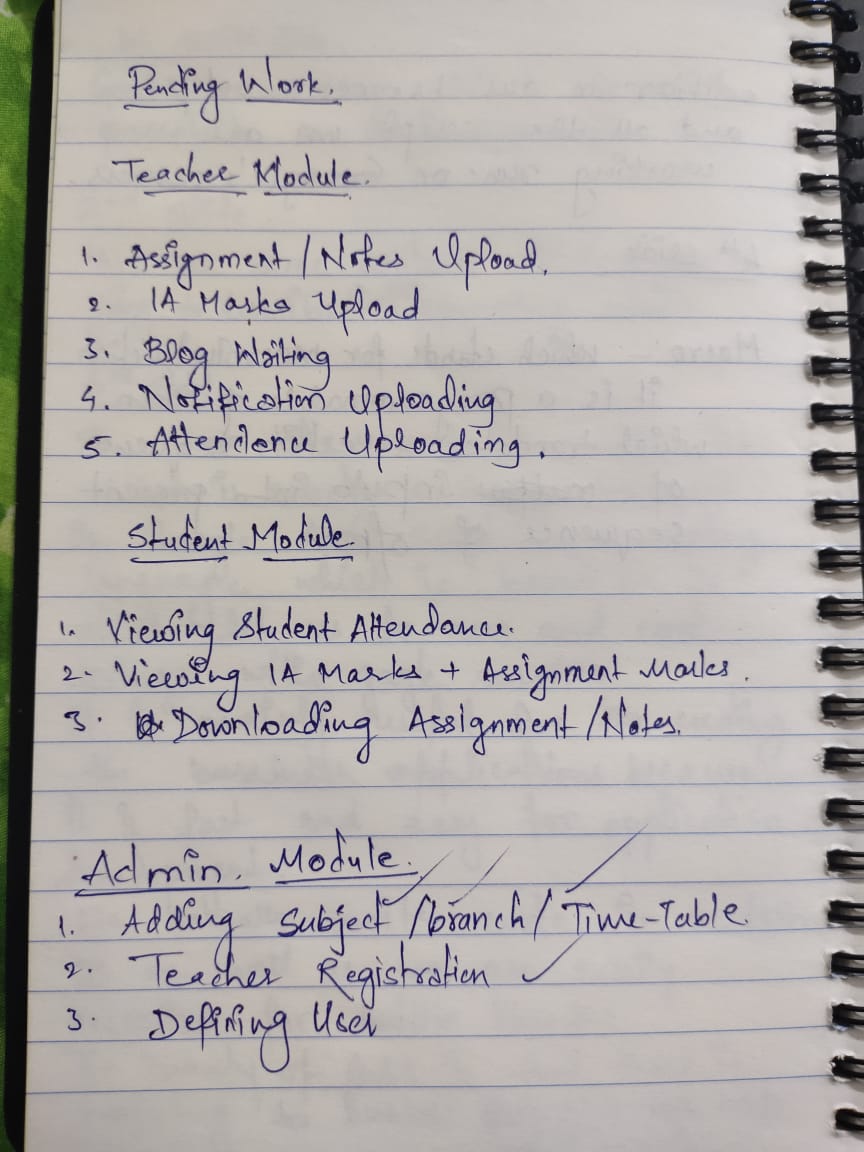 Pending Work.
Teacher Module.
1. Assignment / Notes Upload.
2. IA Marks Upload
3. Blog Writing
4. Notification Uploading
5. Attendence Uploading.
Student Module
1. Viewing Student Attendance.
2. Viewing IA Marks + Assignment Marks.
3. Downloading Assignment / Notes.
Admin. Module.
1. Adding Subject / branch / Time-Table.
2. Teacher Registration
3. Defining User